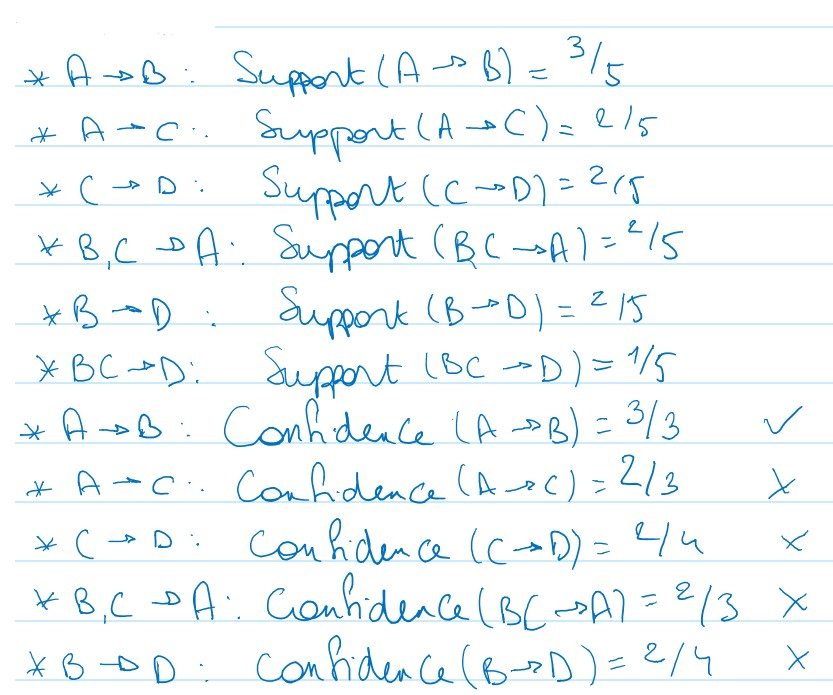 * A → B : Support (A → B) = 3/5
* A → C : Support (A → C) = 2/5
* C → D : Support (C → D) = 2/5
* B,C → A : Support (BC → A) = 2/5
* B → D : Support (B → D) = 2/5
* BC → D : Support (BC → D) = 1/5
* A → B : Confidence (A → B) = 3/3 ✓
* A → C : Confidence (A → C) = 2/3 ×
* C → D : Confidence (C → D) = 2/4 ×
* B,C → A : Confidence (BC → A) = 2/3 ×
* B → D : Confidence (B → D) = 2/4 ×